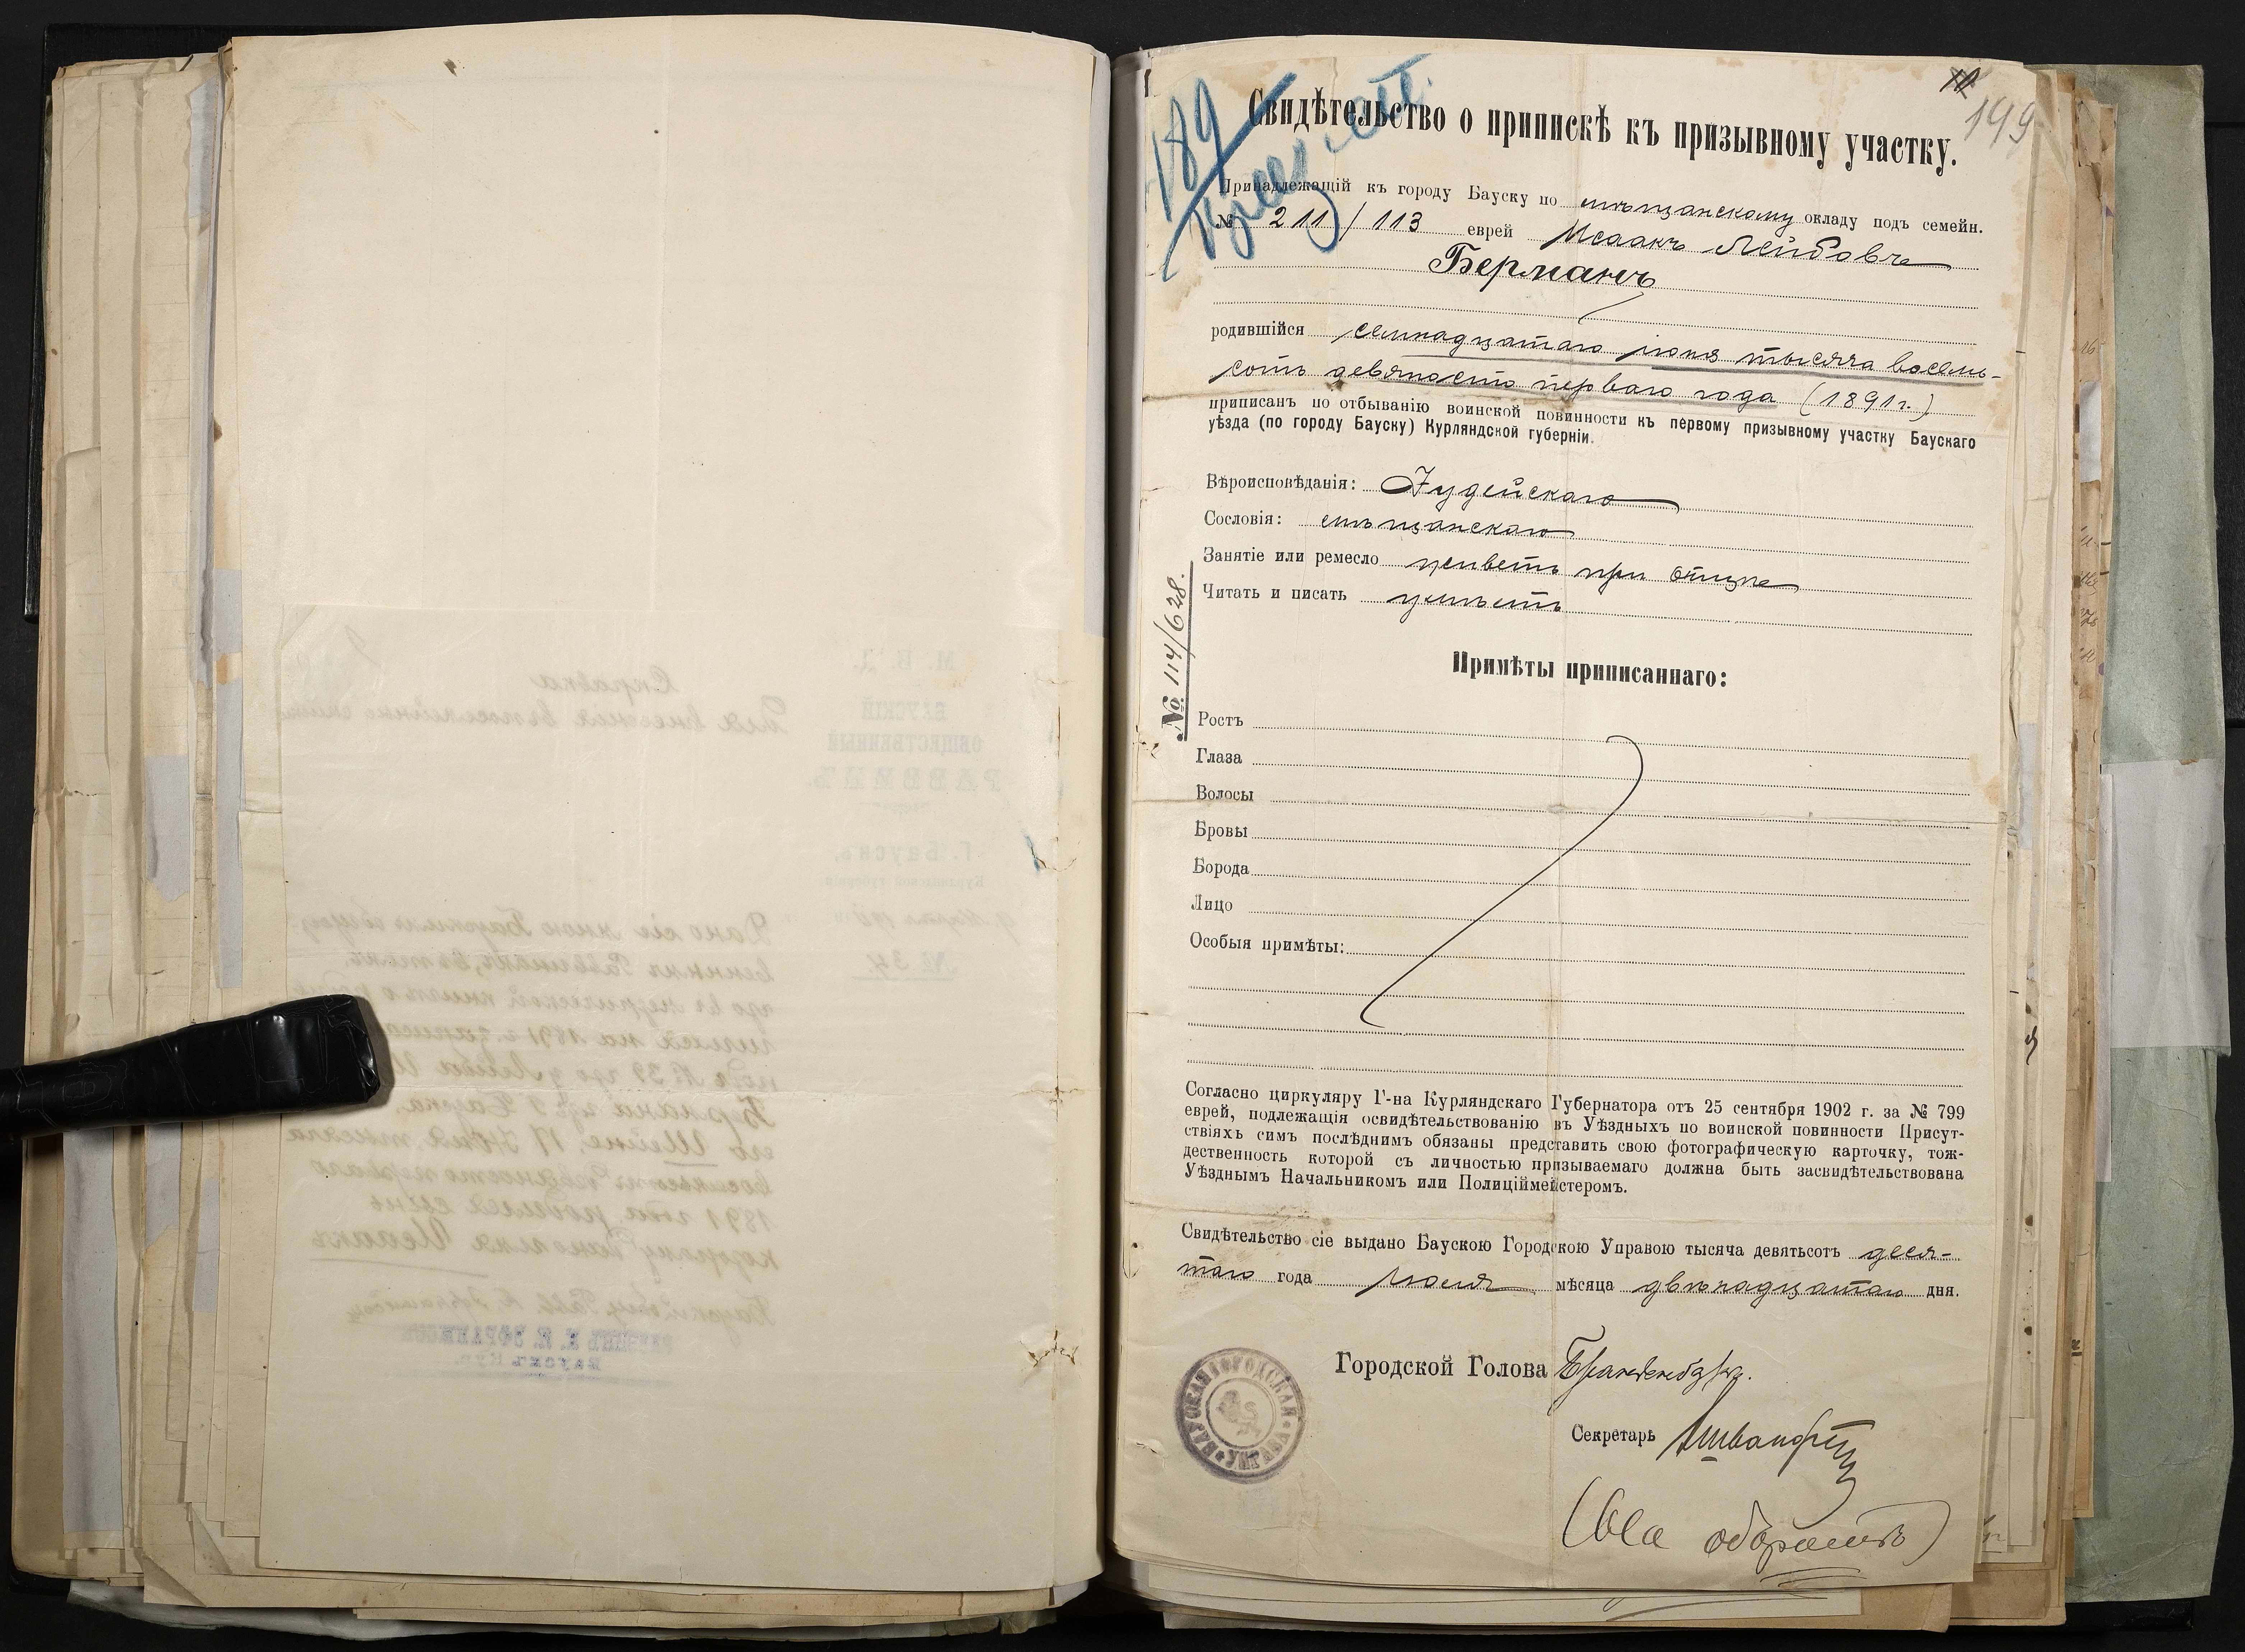 189
199
Свидѣтельство о припискѣ къ призывному участку.
Принадлежащій къ городу Бауску по мѣщанскому окладу подъ семейн.
№ 211/113 еврей Исаакъ Лейбовъ
Берманъ
родившійся семнадцатаго іюня тысяча восемь-
сотъ девяносто перваго года (1891 г.)
приписанъ по отбыванію воинской повинности къ первому призывному участку Баускаго
уѣзда (по городу Бауску) Курляндской губерніи.
Вѣроисповѣданія: Іудейскаго
Сословія: мѣщанскаго
Занятіе или ремесло живетъ при отцѣ
Читать и писать умѣетъ
№ 114/628.
Примѣты приписаннаго:
Ростъ
Глаза
Волосы
Бровы
Борода
Лицо
Особыя примѣты:
Согласно циркуляру Г-на Курляндскаго Губернатора отъ 25 сентября 1902 г. за № 799
еврей, подлежащія освидѣтельствованію въ Уѣздныхъ по воинской повинности Присут-
ствіяхъ симъ послѣднимъ обязаны представить свою фотографическую карточку, тож-
дественность которой съ личностью призываемаго должна быть засвидѣтельствована
Уѣзднымъ Начальникомъ или Полиціймейстеромъ.
Свидѣтельство сіе выдано Баускою Городскою Управою тысяча девятьсотъ деся-
таго года іюля мѣсяца двѣнадцатаго дня.
Городской Голова
Секретарь
БАУСКАЯ ГОРОДСКАЯ УПРАВА
(На оборотѣ)